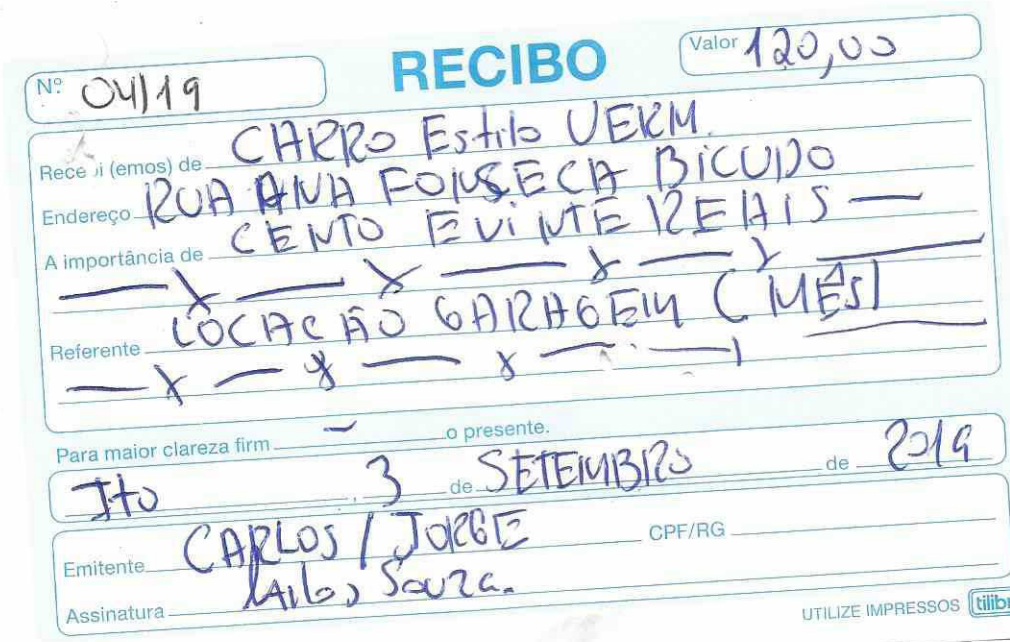 Nº 04/19 RECIBO Valor 120,00
Recebi (emos) de CARRO Estilo VERM.
Endereço RUA ANA FONSECA BICUDO
A importância de CENTO E VINTE REAIS
Referente LOCAÇÃO GARAGEM (MÊS)
Para maior clareza firm o presente.
Ito, 3 de SETEMBRO de 2019
Emitente CARLOS / JORGE CPF/RG
Assinatura Carlos Souza.
UTILIZE IMPRESSOS tilibra